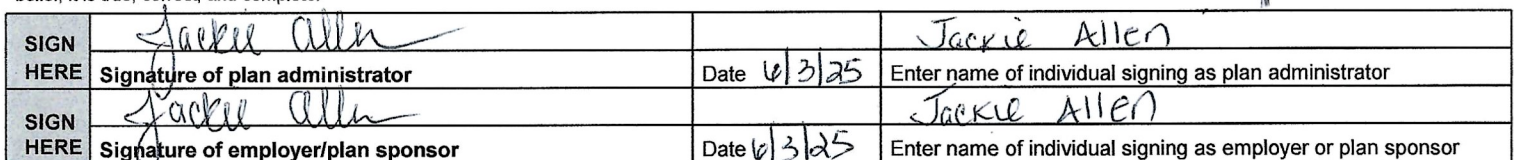 belief, it is true, correct, and complete.
SIGN HERE Jackie Allen Jackie Allen
Signature of plan administrator Date 6/3/25 Enter name of individual signing as plan administrator
SIGN HERE Jackie Allen Jackie Allen
Signature of employer/plan sponsor Date 6/3/25 Enter name of individual signing as employer or plan sponsor